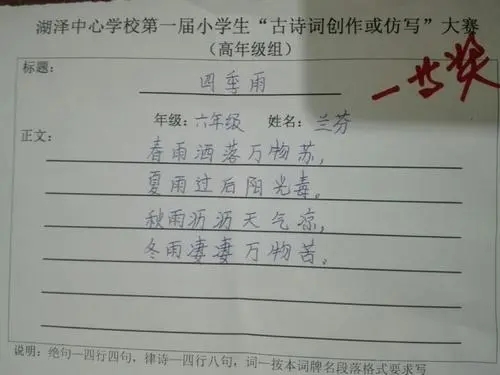 湖泽中心学校第一届小学生“古诗词创作或仿写”大赛
（高年级组）
标题：
四季雨
一等奖
年级：六年级 姓名：兰芬
正文：
春雨洒落万物苏，
夏雨过后阳光毒。
秋雨沥沥天气凉，
冬雨凄凄万物苦。
说明：绝句—四行四句，律诗—四行八句，词—按本词牌名段落格式要求写